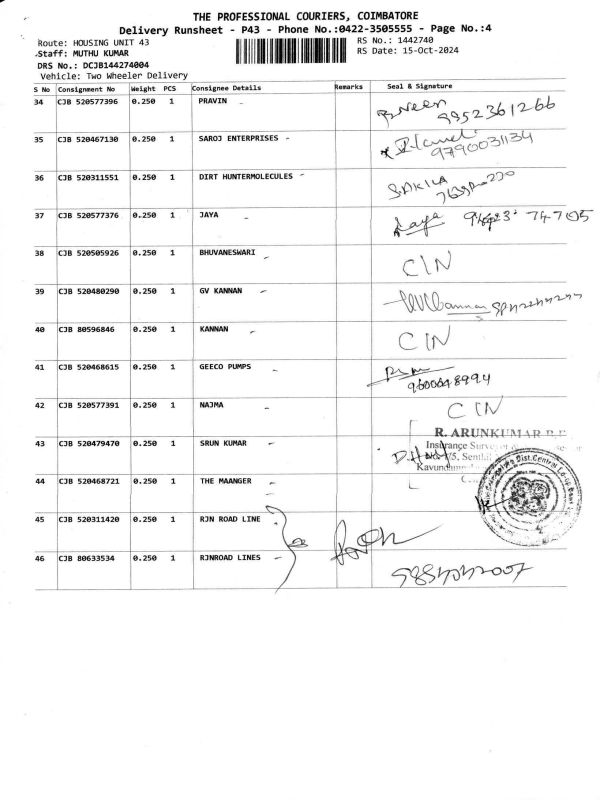 THE PROFESSIONAL COURIERS, COIMBATORE
Delivery Runsheet - P43 - Phone No.:0422-3505555 - Page No.:4
Route: HOUSING UNIT 43
RS No.: 1442740
Staff: MUTHU KUMAR
RS Date: 15-Oct-2024
DRS No.: DCJB144274004
Vehicle: Two Wheeler Delivery
S No Consignment No Weight PCS Consignee Details Remarks Seal & Signature
34 CJB 520577396 0.250 1 PRAVIN 9952361266
35 CJB 520467130 0.250 1 SAROJ ENTERPRISES - 9790031134
36 CJB 520311551 0.250 1 DIRT HUNTERMOLECULES - SAKILA
37 CJB 520577376 0.250 1 JAYA - Jaya 74705
38 CJB 520505926 0.250 1 BHUVANESWARI - CIN
39 CJB 520480290 0.250 1 GV KANNAN -
40 CJB 80596846 0.250 1 KANNAN - CIN
41 CJB 520468615 0.250 1 GEECO PUMPS - 9600048994
42 CJB 520577391 0.250 1 NAJMA - CIN
R. ARUNKUMAR B.E
43 CJB 520479470 0.250 1 SRUN KUMAR - Insurance Surveyor
44 CJB 520468721 0.250 1 THE MAANGER - Dist.Central Co-op Bank
45 CJB 520311420 0.250 1 RJN ROAD LINE
46 CJB 80633534 0.250 1 RJNROAD LINES